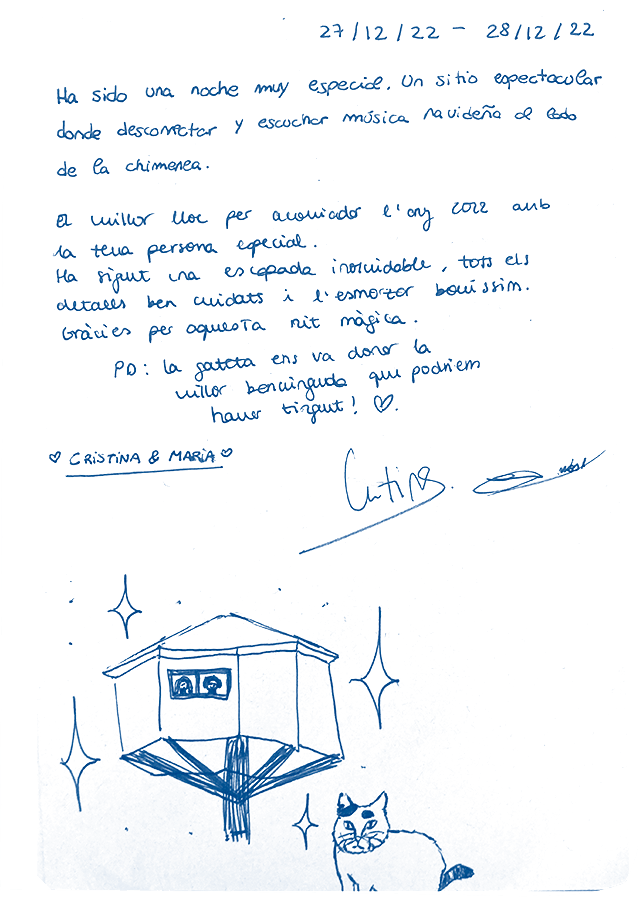 27/12/22 - 28/12/22
Ha sido una noche muy especial. Un sitio espectacular
donde desconectar y escuchar música navideña al lado
de la chimenea.
El millor lloc per acomiadar l'any 2022 amb
la teva persona especial.
Ha sigut una escapada inoluidable, tots els
detalls ben cuidats i l'esmorzar boníssim.
Gràcies per aquesta nit màgica.
PD: la gateta ens va donar la
millor benvinguda que podríem
haver tingut! ♡.
♡ CRISTINA & MARIA ♡
Cristina